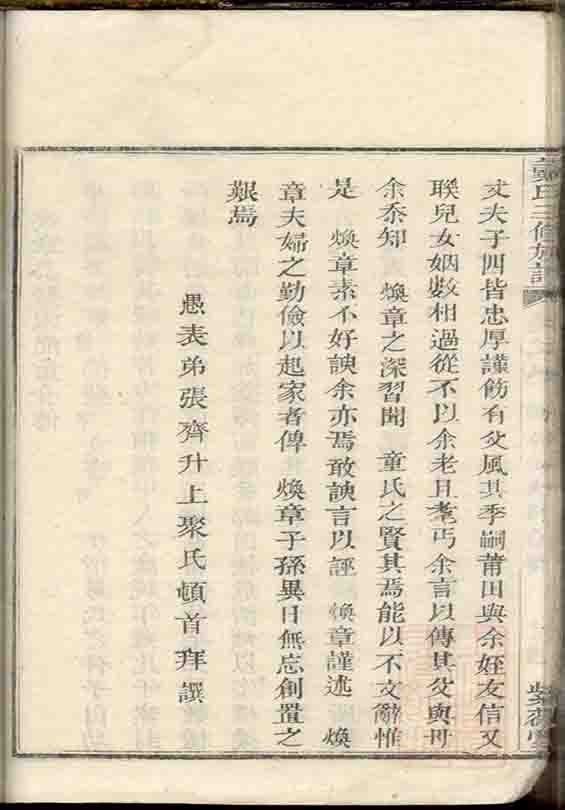 丈夫子四皆忠厚謹飭有父風其季嗣莆田與余姪友信又
聯兒女姻數相過從不以余老且耄丐余言以傳其父與母
余忝知 煥章之深習聞 童氏之賢其焉能以不文辭惟
是 煥章素不好諛余亦焉敢諛言以誣 煥章謹述 煥
章夫婦之勤儉以起家者俾 煥章子孫異日無忘創置之
艱焉
愚表弟張齊升上聚氏頓首拜譔